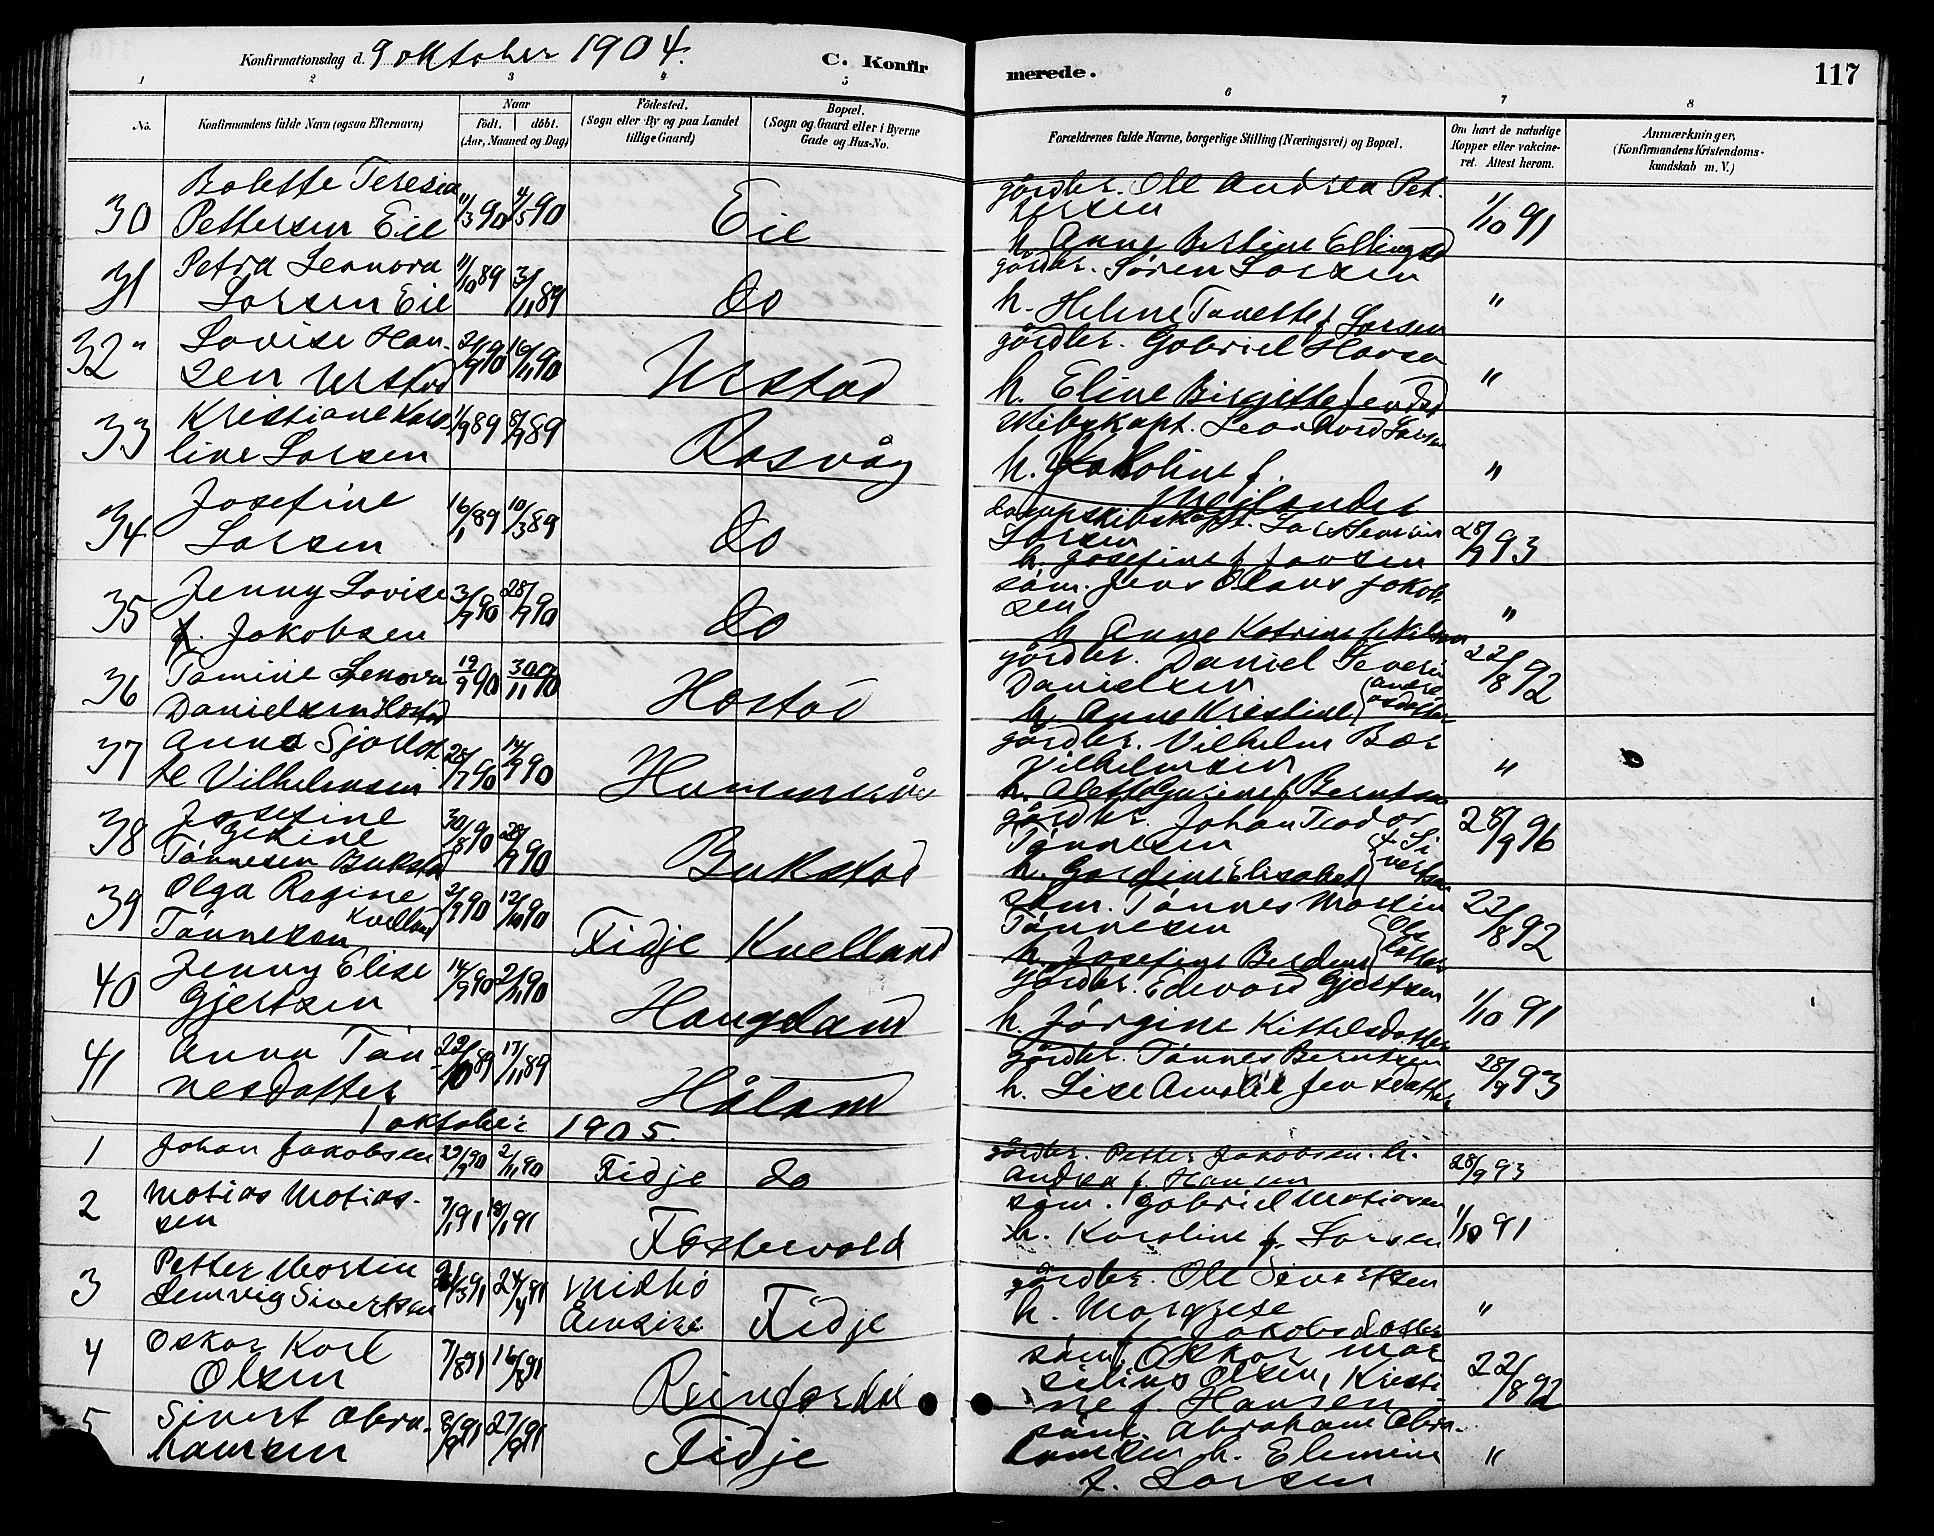 Konfirmationsdag d. 9 oktober 1904.
C. Konfirmerede.
117
1 2 3 4 5 6 7 8
No.
Konfirmandens fulde Navn (ogsaa Efternavn)
Naar
födt. döbt.
(Aar, Maaned og Dag)
Födested.
(Sogn eller By og paa Landet
tillige Gaard)
Bopæl.
(Sogn og Gaard eller i Byerne
Gade og Hus-No.
Forældrenes fulde Navne, borgerlige Stilling (Næringsvei) og Bopæl.
Om havt de naturlige
Kopper eller vakcine-
ret. Attest herom.
Anmærkninger,
(Konfirmandens Kristendoms-
kundskab m. V.)
30 Bolette Teresia
Pettersen Eie 11/3 90 4/5 90 Eie
gårdbr. Ole Andrea Pet.
tersen
h. Anne Bertine Ellingsd 1/10 91
31 Petra Leonora
Larsen Eie 11/10 89 3/11 89 do
gårdbr. Sören Larsen
h. Helene Tonette f. Larsen "
32 Lovise Han-
sen Urstad 21/9 90 16/11 90 Urstad
gårdbr. Gabriel Hansen
h. Eline Birgitte Jensd "
33 Kristiane Karo-
line Larsen 11/9 89 8/9 89 Rasvåg
skibskapt. Leonhard Larsen
h. Karoline f.
Meilander "
34 Josefine
Larsen 16/1 89 10/3 89 do
dampskibskapt. Lars
Larsen
h. Josefine f. Jansen 28/9 93
35 Jenny Lovise
f. Jakobsen 3/9 90 28/9 90 do
söm. Jens Olaus Jakob-
sen
h. Anne Katrine f. Nilsen "
36 Tomine Lenora
Danielsen Hostad 19/9 90 30/11 90 Hostad
gårdbr. Daniel Severin
Danielsen
h. Anne Kristine Andre
asdatter 22/8 92
37 Anna Sjarlot
te Vilhelmsen 28/7 90 14/9 90
gårdbr. Vilhelm Bær
Vilhelmsen
f. Berntsen "
38 Josefine
Tönnesen Bukstad 30/8 90 28/9 90 Bukstad
gårdbr. Johan Teodor
Tönnesen
h. Gardine Elisabet f. Si
vertsen 28/9 96
39 Olga Regine
Tönnesen Kvelland 21/9 90 12/10 90 Fidje Kvelland
söm. Tönnes Martin
Tönnesen
h. Josefine Ols
datter 22/8 92
40 Jenny Elise
Gjertsen 14/9 90 2/11 90 Haugland
gårdbr. Edevard Gjertsen
h. Jörgine Kittelsdatter 1/10 91
41 Anna Tön
nesdatter 22/10 89 17/11 89 Håland
gårdbr. Tönnes Berntsen
h. Lise Amalie Jensdatter 28/9 93
1 oktober 1905.
1 Johan Jakobsen 29/9 90 2/11 90 Fidje do
gårdbr. Petter Jakobsen h.
Andrea f. Hansen 28/9 93
2 Matias Matias-
sen 7/1 91 18/1 91 Fostervold
söm. Gabriel Matiassen
h. Karoline f. Larsen 1/10 91
3 Petter Martin
Lemvig Sivertsen 21/3 91 24/4 91 Fidje
gårdbr. Ole Sivertsen
h. Margrete
Jakobsdatter "
4 Oskar Karl
Olsen 7/8 91 16/8 91
söm. Oskar Mar
selius Olsen, Kristi
ne f. Hansen 22/8 92
5 Sivert Abra-
hamsen 8/9 91 27/9 91 Fidje
söm. Abraham Abra-
hamsen h. Elemine
f. Larsen "